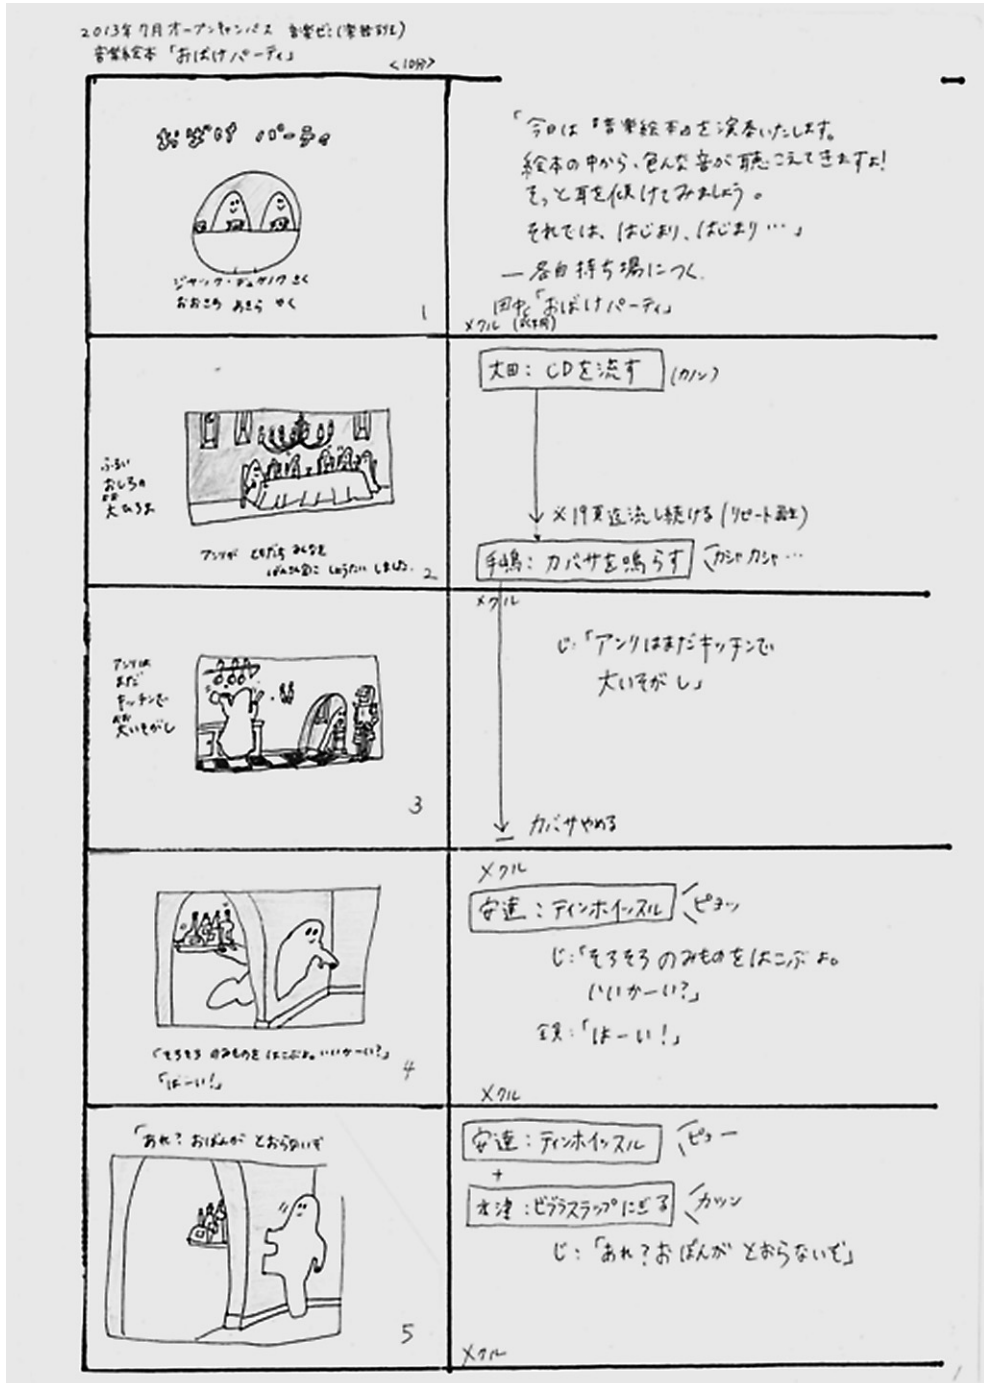 2013年7月オープンキャンパス 音楽ゼミ
音楽絵本「おばけパーティ」
<10分>
おばけ パーティ
ジャック・デュケノワ さく
おおさわ あきら やく
1
「今日は『音楽絵本』を演奏いたします。
絵本の中から、色んな音が聴こえてきますよ!
そっと耳を傾けてみましょう。
それでは、はじまり、はじまり…」
― 各自持ち場につく。
田中:「おばけパーティ」
メクル
ふるい
おしろの
大ひろま
アンリが ともだち みんなを
ばんさんかいに しょうたい しました。
2
太田: CDを流す (カノン)
※19頁迄流し続ける (リピート再生)
手嶋: カバサを鳴らす カシャカシャ…
アンリは
まだ
キッチンで
大いそがし
3
メクル
じ:「アンリはまだキッチンで
大いそがし」
カバサやめる
「そろそろ のみものを はこぶよ。いいかーい?」
「はーい!」
4
メクル
安達:ティンホイッスル ピョッ
じ:「そろそろ のみものをはこぶよ。
いいかーい?」
全員:「はーい!」
メクル
「あれ? おぼんが とおらないぞ
5
安達:ティンホイッスル ピョー
+
木津:ビブラスラップにぎる カッン
じ:「あれ?おぼんが とおらないぞ」
メクル
1